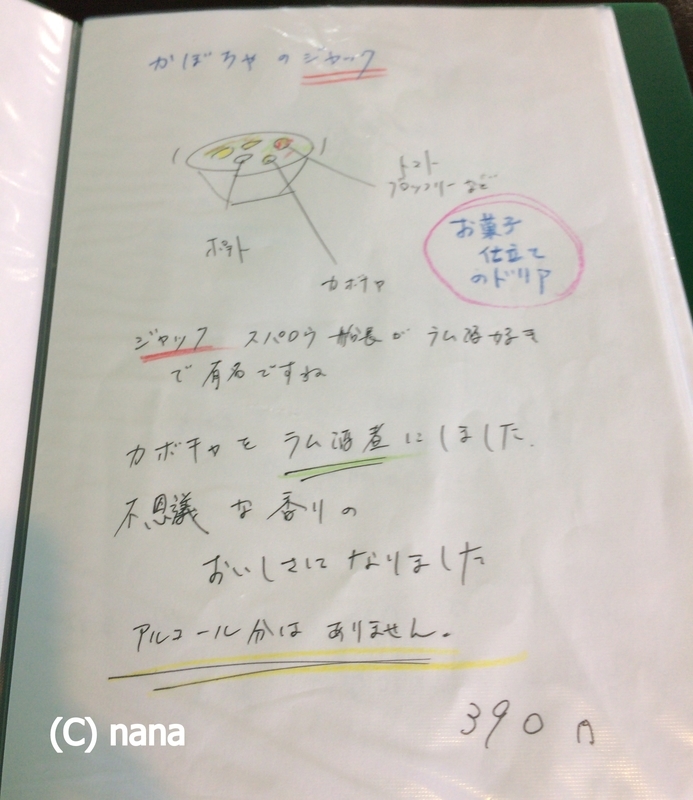 かぼちゃのジャック
トマト
ブロッコリーなど
ポテト
カボチャ
お菓子
仕立て
のドリア
ジャック スパロウ 船長が ラム酒好き
で有名ですね
カボチャを ラム酒煮にしました.
不思議な香りの
おいしさになりました
アルコール分は ありません。
390円
(C) nana